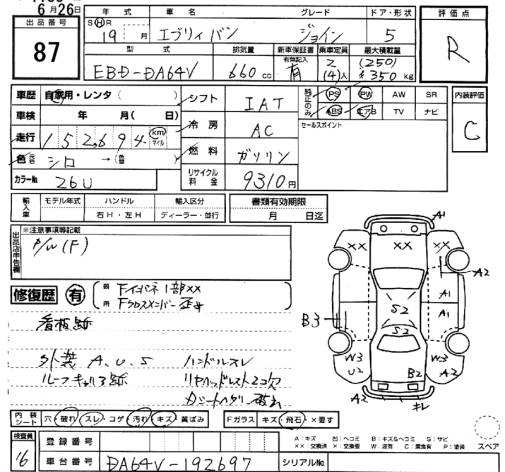 6月26日
出品番号
87
年式 車名 グレード ドア・形状
SⒽR 19年 月 エブリィバン ジョイン 5
型式 排気量 新車保証書 乗車定員 最大積載量
有効記入
EBD-DA64V 660cc 有 2(4)人 (250) 350kg
評価点
R
内装評価
C
車歴 自家用・レンタ( )
車検 年 月(日)
走行 152,694 km マイル
色 元色 シロ → 色替( )
カラーNo. 26U
シフト IAT
冷房 AC
燃料 ガソリン
リサイクル料金 9310円
純正のみ PS PW AW SR
ABS エアB TV ナビ
セールスポイント
輸入車 モデル年式 ハンドル 右H・左H 輸入区分 ディーラー・並行
書類有効期限
月 日迄
出品店申告欄
※注意事項等記載
P/W(F)
修復歴 有
Fインパネ1部××
Fクロスメンバー歪
看板跡
外装 A.U.S ハンドルスレ
ルーフキャリア跡 リヤヘッドレスト2コ欠
××
××
A1
A2
A1
A1
B3
S2
S2
W3
U2
B2
W3
A2
A2
キレ
内装シート 穴 破れ スレ コゲ 汚れ キズ 黄ばみ
Fガラス キズ 飛石 ×要す
検査員
16
登録番号
車台番号 DA64V-192697
シリアルNo.
A:キズ U:ヘコミ B:キズ&ヘコミ S:サビ
××:交換済 ×:交換要 W:波有 C:腐食有 P:塗装
スペア